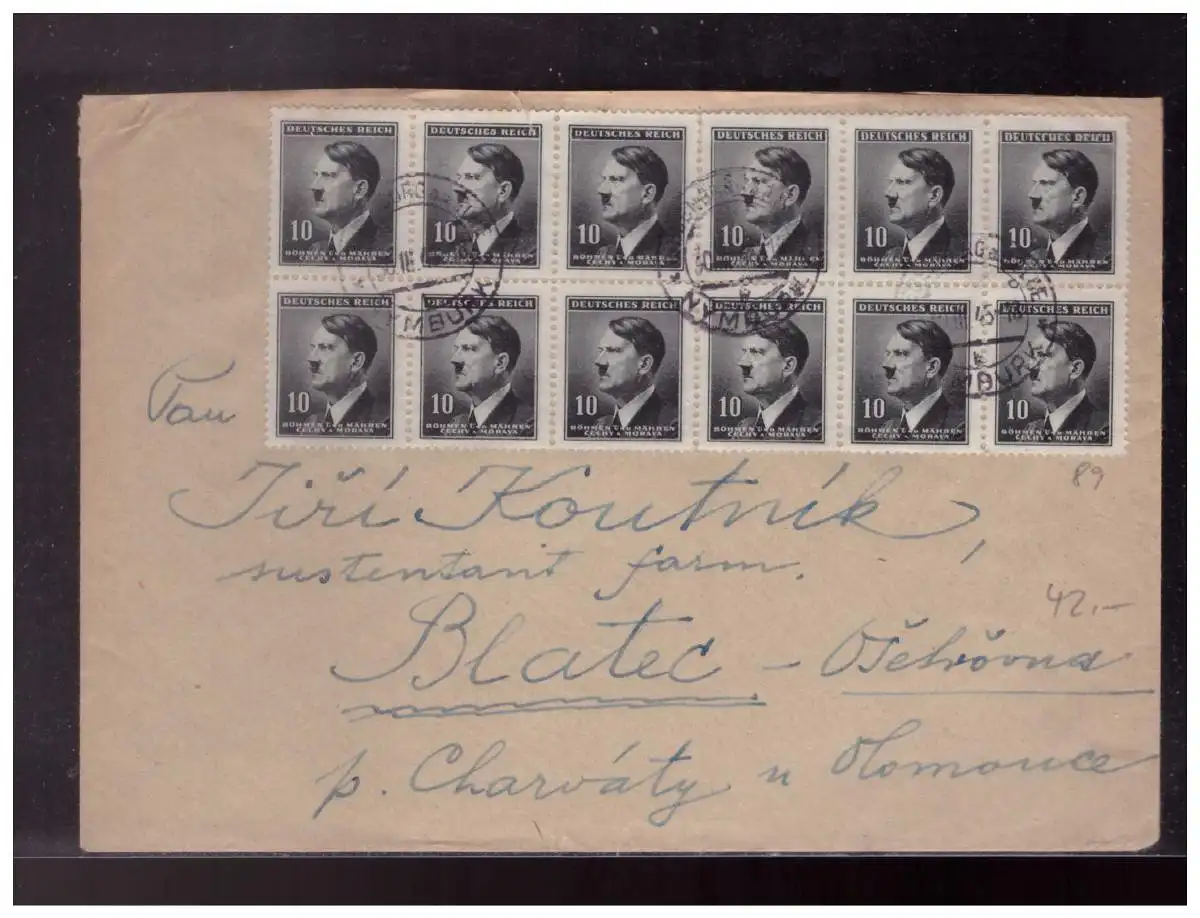 DEUTSCHES REICH DEUTSCHES REICH DEUTSCHES REICH DEUTSCHES REICH DEUTSCHES REICH DEUTSCHES REICH
10 10 10 10 10 10
BÖHMEN UND MÄHREN BÖHMEN UND MÄHREN BÖHMEN UND MÄHREN BÖHMEN UND MÄHREN BÖHMEN UND MÄHREN BÖHMEN UND MÄHREN
ČECHY A MORAVA ČECHY A MORAVA ČECHY A MORAVA ČECHY A MORAVA ČECHY A MORAVA ČECHY A MORAVA
NYMBURK
DEUTSCHES REICH DEUTSCHES REICH DEUTSCHES REICH DEUTSCHES REICH DEUTSCHES REICH DEUTSCHES REICH
10 10 10 10 10 10
BÖHMEN UND MÄHREN BÖHMEN UND MÄHREN BÖHMEN UND MÄHREN BÖHMEN UND MÄHREN BÖHMEN UND MÄHREN BÖHMEN UND MÄHREN
ČECHY A MORAVA ČECHY A MORAVA ČECHY A MORAVA ČECHY A MORAVA ČECHY A MORAVA ČECHY A MORAVA
Pan
89
Jiří Koutník,
sustentant farm.
42.-
Blatec -
p. Charváty u Olomouce